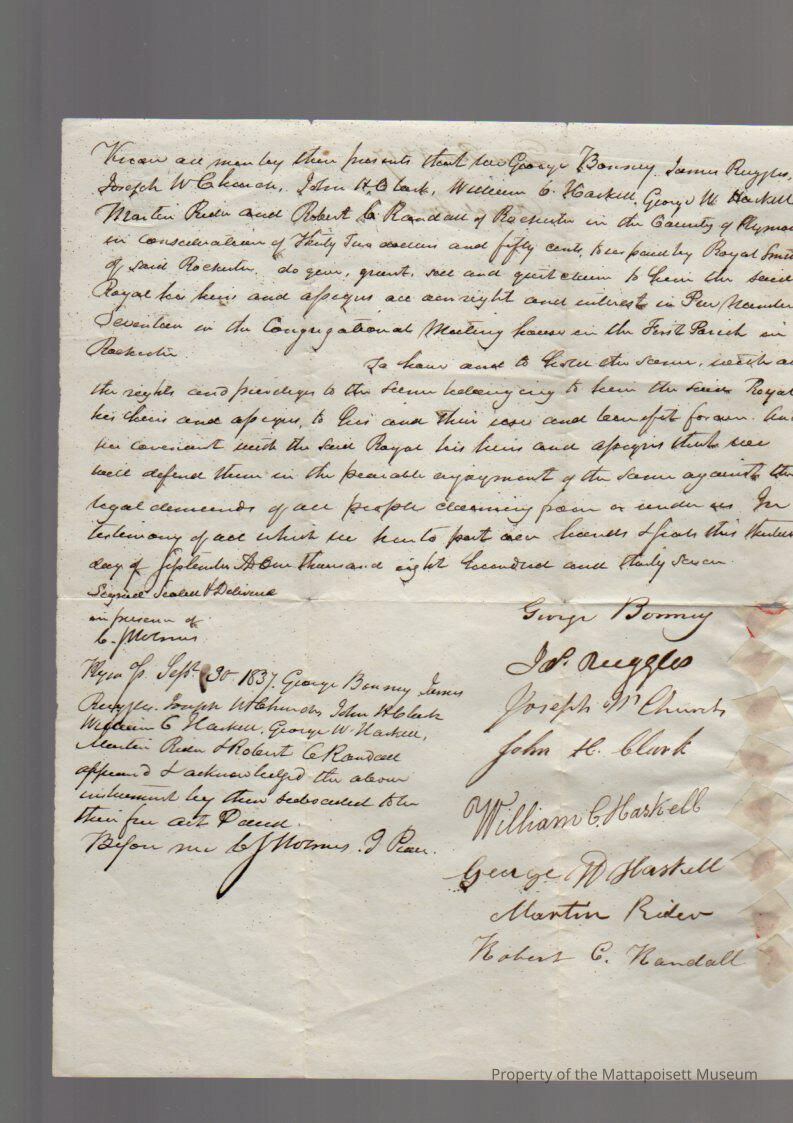 Know all men by these presents that we George Bonney, James Ruggles,
Joseph W Church, John H Clark, William C. Haskell, George W. Haskell
Martin Rider and Robert C. Randall of Rochester in the County of Plymou
in consideration of Thirty Two dollars and fifty cents, to us paid by Royal Smit
of said Rochester, do give, grant, sell and quitclaim to him the said
Royal his heirs and assigns all our right and interest in Pew Number
Seventeen in the Congregational Meeting house in the First Parish in
Rochester
To have and to hold the same, with a
the rights and privileges to the same belonging to him the said Royal
his heirs and assigns, to his and their use and benefit forever. And
we covenant with the said Royal his heirs and assigns that we
will defend them in the peaceable enjoyment of the same against the
legal demands of all people claiming from or under us. In
testimony of all which we hereto put our hands & seals this
day of September A D One thousand eight hundred and thirty seven.
Signed Sealed & Delivered
in presence of
C. J Holmes
George Bonney
Js. Ruggles
Joseph W Church
John H. Clark
William C. Haskell
George W Haskell
Martin Rider
Robert C. Randall
Plym Ss. Sept. 30. 1837. George Bonney James
Ruggles. Joseph W Church, John H Clark
William C Haskell, George W. Haskell,
Martin Rider & Robert C Randall
appeared & acknowledged the above
instrument by them subscribed to be
their free act & deed.
Before me C J Holmes. J Peace.
Property of the Mattapoisett Museum